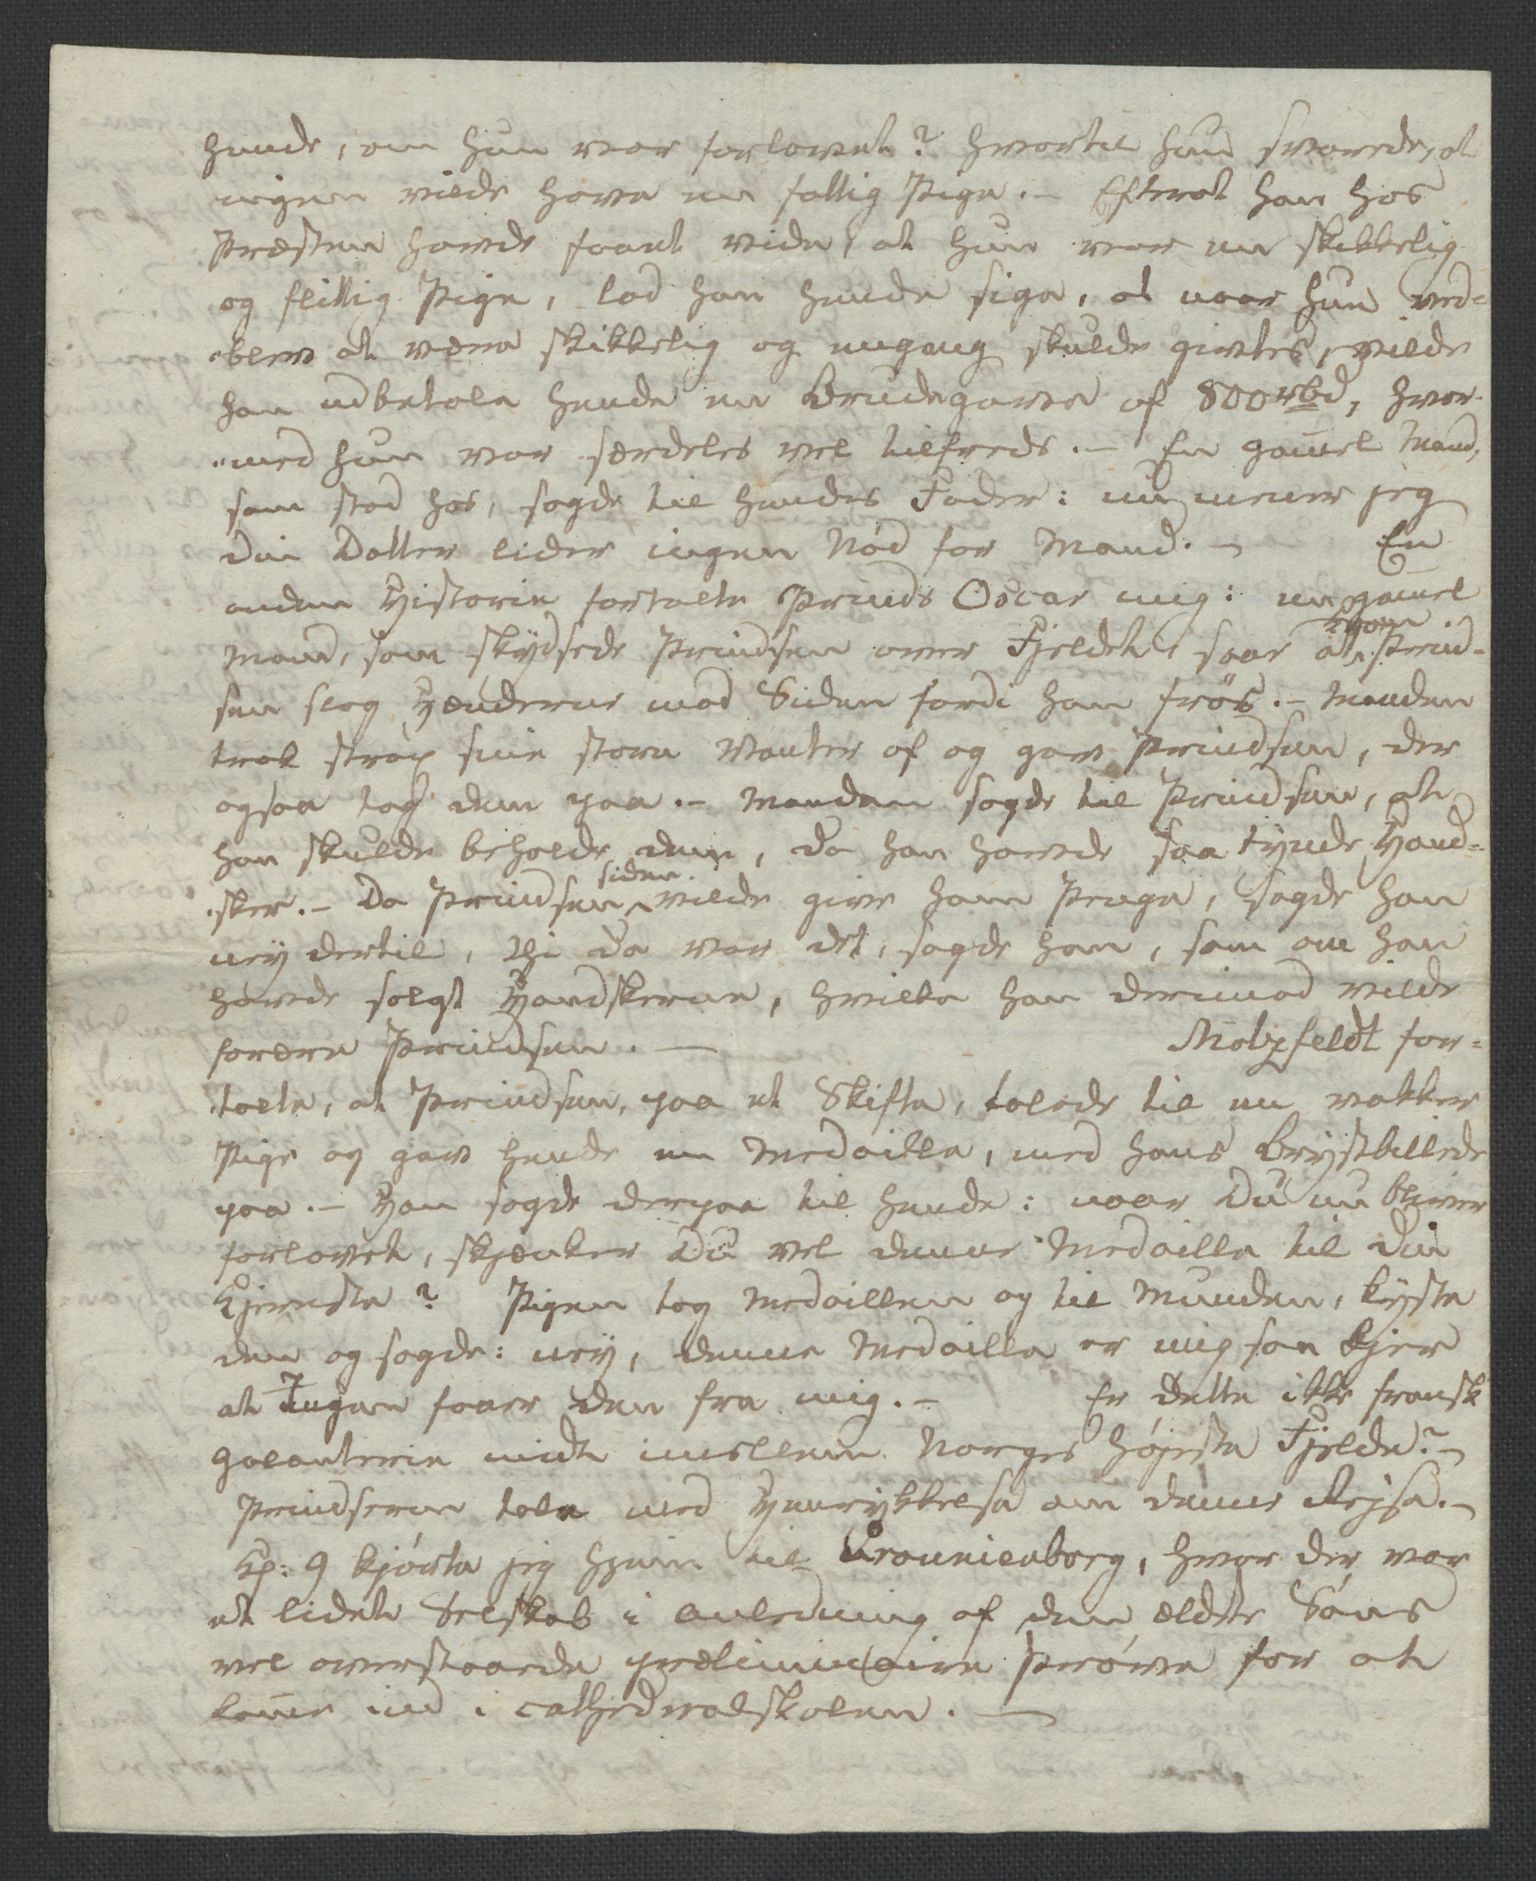 hende, om hun var forlovet? hvortil hun svarede, at
ingen vilde have en fattig Pige. – Efterat han hos
Præsten havde faaet vide, at hun var en skikkelig
og flittig Pige, lod han hende sige, at naar hun ved-
blev at være skikkelig og engang skulde giftes, vilde
han udbetale hende en Brudegave af 800 rbd, hvor-
med hun var særdeles vel tilfreds. – En gam̄el Mand,
som stod hos, sagde til hendes Fader: nu mener jeg
din Datter lider ingen Nød for Mand. – En
anden Historie fortalte Prinds Oscar mig: en gam̄el
Mand, som skydsede Prindsen over Fjeldet, saae at Prind-
sen slog Hænderne mod Siden fordi han frøs. – Manden
trak strax sine store Vanter af og gav Prindsen, der
ogsaa tog dem paa. – Manden sagde til Prindsen, at
han skulde beholde dem, da han havde saa tynde Hand-
sker. – Da Prindsen siden vilde give ham Penge, sagde han
nej dertil, thi da var det, sagde han, som om han
havde solgt Handskerne, hvilke han derimod vilde
forære Prindsen. – Motzfeldt for-
talte, at Prindsen, paa et Skifte, talede til en vakker
Pige og gav hende en Medaille, med hans Brystbillede
paa. – Han sagde derpaa til hende: naar Du nu bliver
forlovet, skjenker Du vel denne Medaille til din
Kjereste? Pigen tog Medaillen og til Munden, kyste
den og sagde: nej, denne Medaille er mig saa kjer
at Ingen faaer den fra mig. – Er dette ikke fransk
Galanterie midt imellem Norges højeste Fjelde? –
Prindserne tale med Henrykkelse om denne Rejse. –
Kl: 9 kjørte jeg hjem til Uranienborg, hvor der var
et lidet Selskab i Anledning af den ældste Søns
vel overstaaede præliminaire Prøve for at
kom̄e ind i Cathedralskolen. –